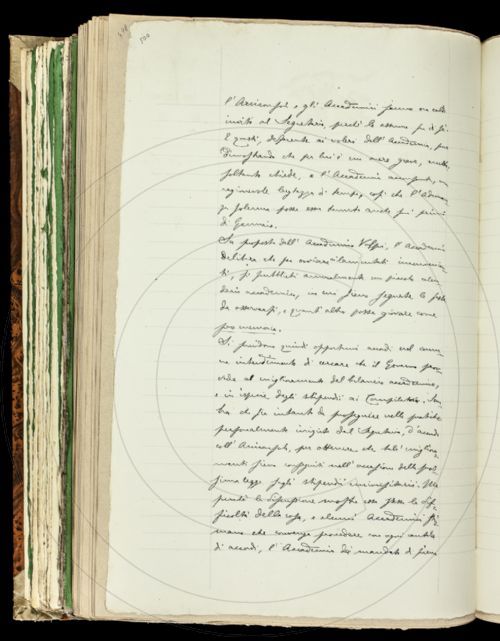 500
l'Arciconsolo e gli Accademici fanno un caldo
invito al Segretario, perché lo assuma per sé.
E questi, deferente ai voleri dell' Accademia, pur
dimostrando che per lui è un onere grave,
soltanto chiede, e l'Accademia acconsente,
ragionevole larghezza di tempo, così che l'Adunan-
za solenne possa esser tenuta anche nei primi
di Gennaio.
Su proposta dell' Accademico Volpi, l' Accademia
delibera che per ovviare a lamentati inconvenien-
ti, si pubblichi annualmente un piccolo calen-
dario accademico, in cui siano segnate le feste
da osservarsi, e quant'altro possa giovare come
pro memoria.
Si prendono quindi opportuni accordi nel comu-
ne intendimento di cercare che il Governo prov-
veda al miglioramento del bilancio accademico,
e in ispecie degli stipendi ai Compilatori.
che sia intanto da proseguire nelle pratiche
personalmente iniziate dal Segretario, d'accordo
coll' Arciconsolo, per ottenere che tali migliora-
menti siano conseguiti nell' occasione della pros-
sima legge sugli stipendi universitari. Ma
poiché la discussione mostra come stesse la dif-
ficoltà della cosa, e alcuni Accademici sti-
mano che convenga procedere con ogni cautela
di accordi, l' Accademia dà mandato di